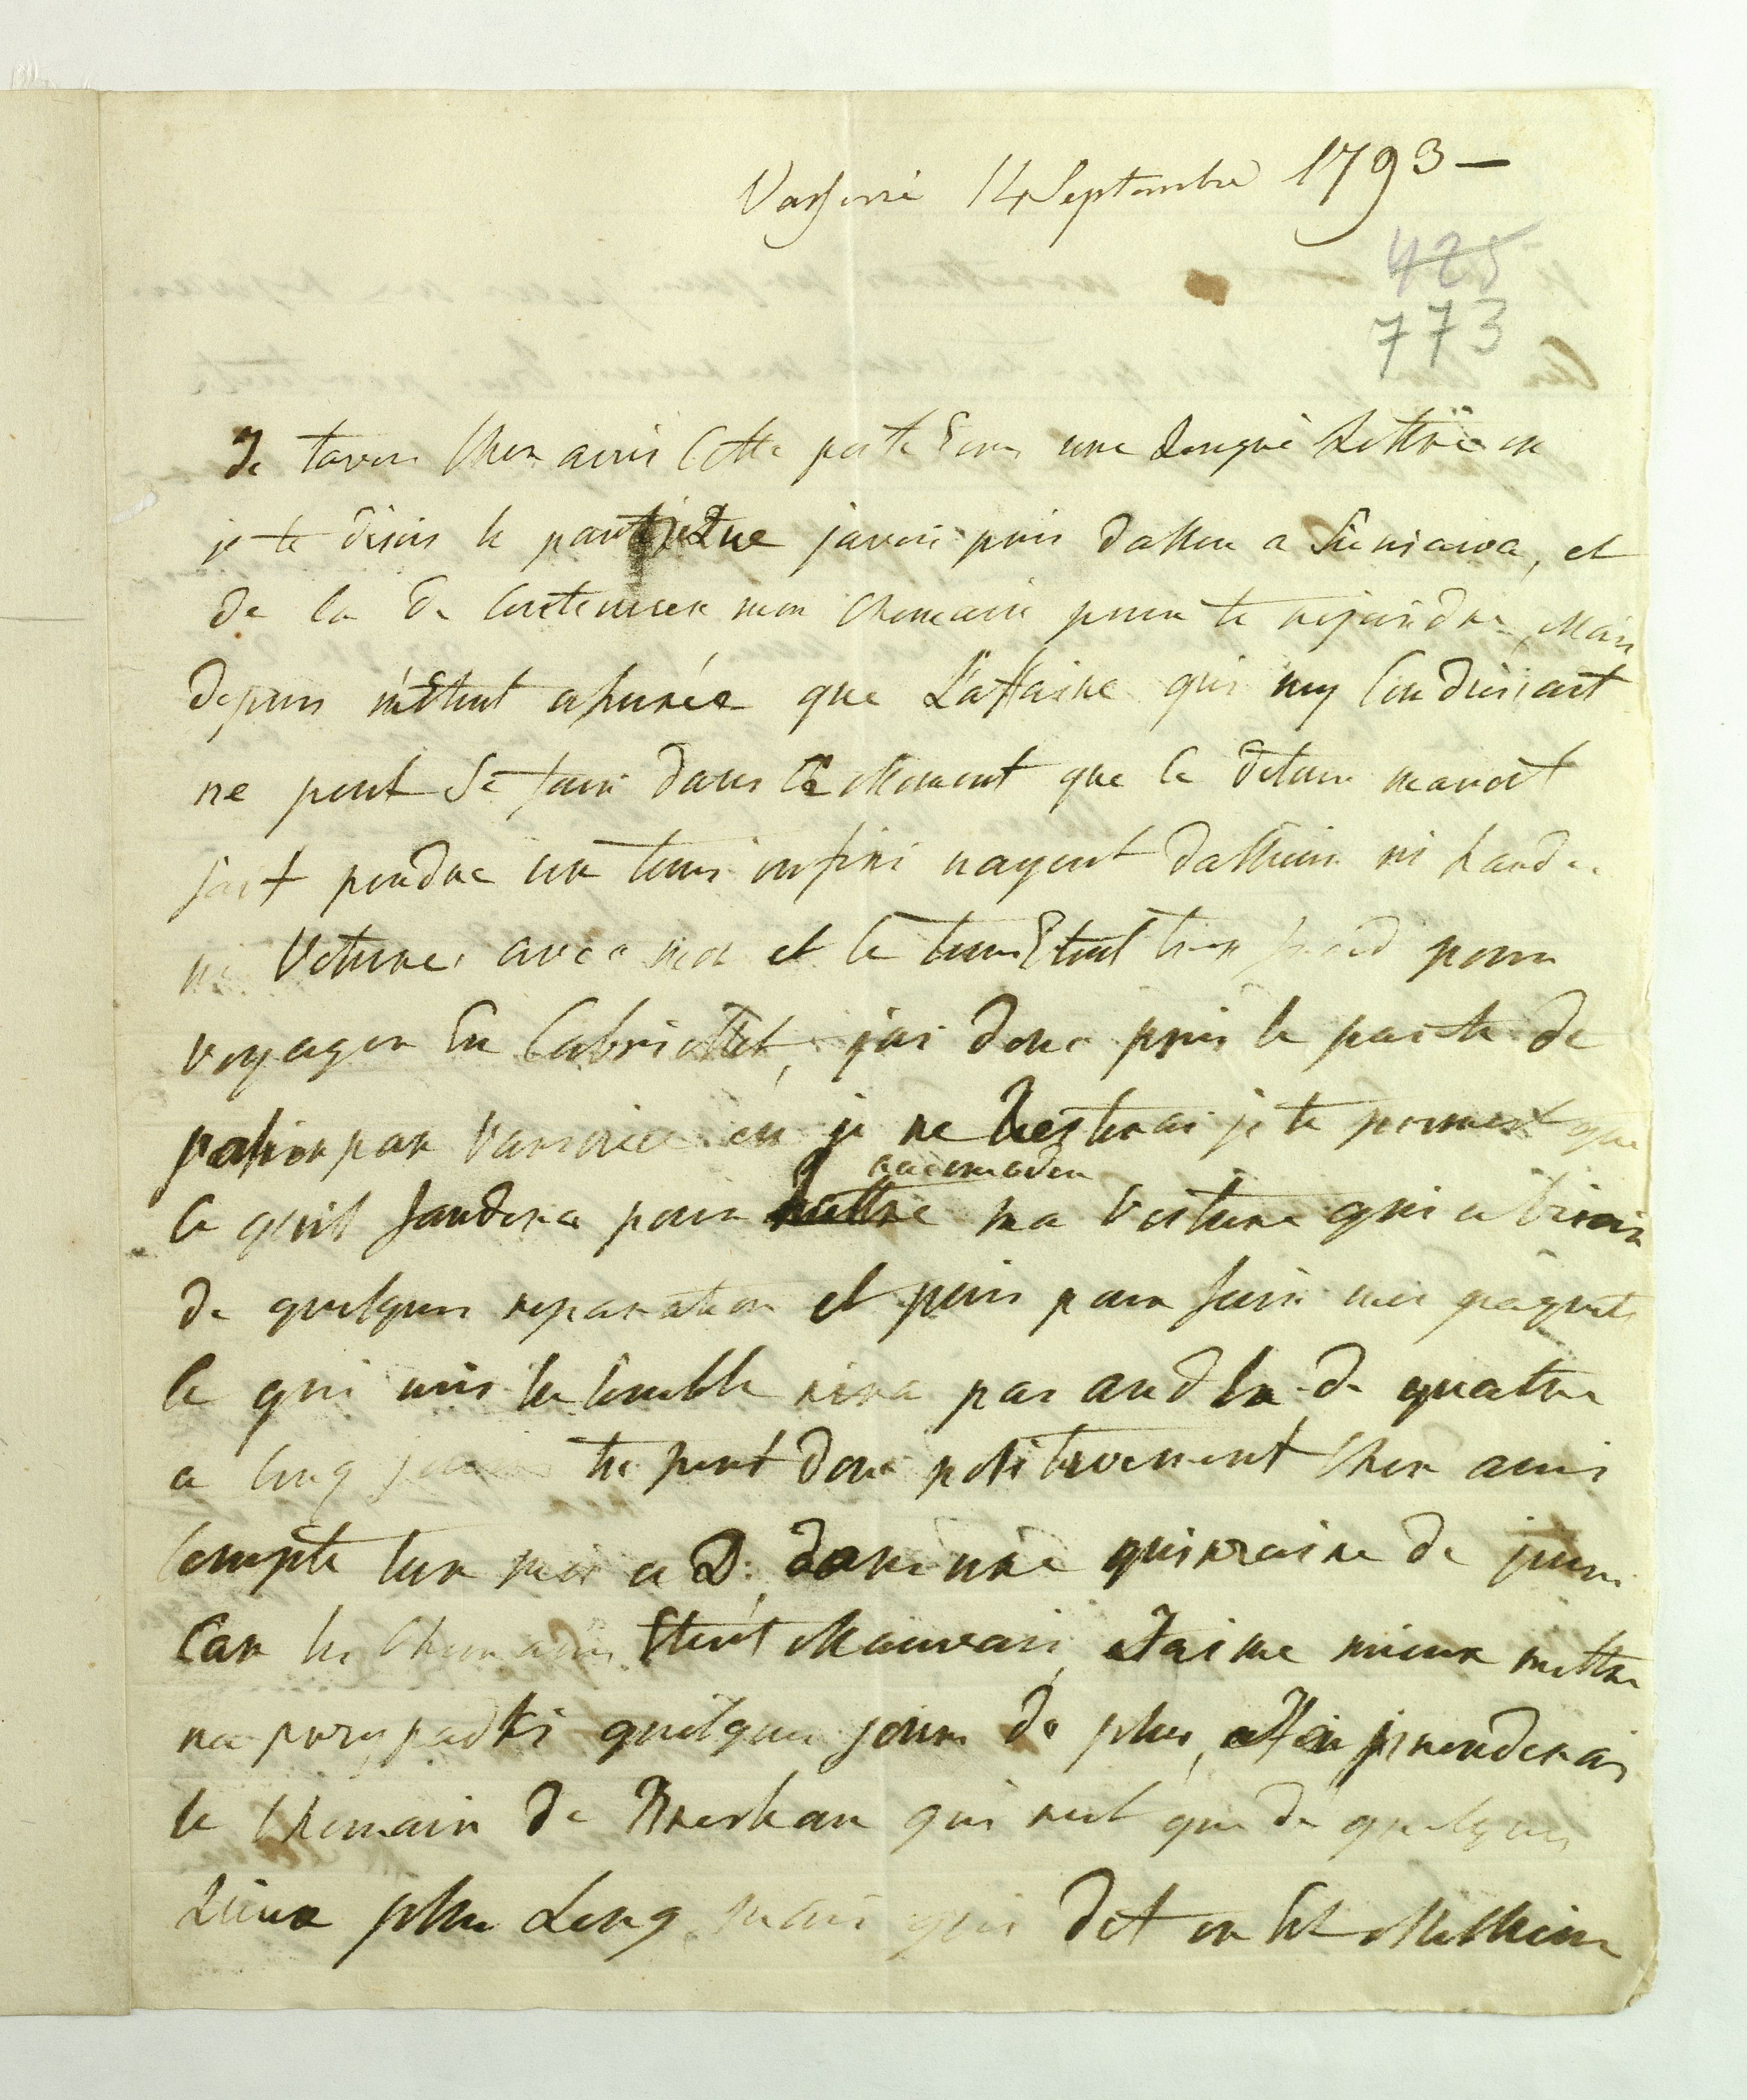 Varsovie 14 Septembre 1793 —
425
773
Je tavois Cher ami Cette poste Ecris une Longue Lettre ou
je te disois le parti que javois pris daller a Sieniawa, et
de la de Continuer mon Chemain pour te rejoindre, Mais
depuis métant assurée que L'affaire qui my Conduisait
ne peut Se faire dans Ce Moment que Ce detour mavoit
fait perdre un tems infini nayent dallieur ni hardes
ni Voiture avec moi et le tems Etent trop froid pour
voyager En Cabriollet, jai donc pris le partie de
passer par Varsovie ou je ne Resterai je te promest que
Ce quil faudera pour
racomoder
ma Voiture qui a bisoin
de quelques reparation et puis pour faire mes paquets
Ce qui me Semble nira pas audela de quatre
a Cinq jours tu peut donc positivement Cher ami
Compter Sur moi a D: dans une quinzaine de jours
Car les Chemains Etent Mauvais, Jaime mieux mettre
na przypadki quelques jours de plus, et je prenderai
le Chemain de Breslau qui nest que de quelques
Lieux plus Long mais qui dit on Est Meillieur